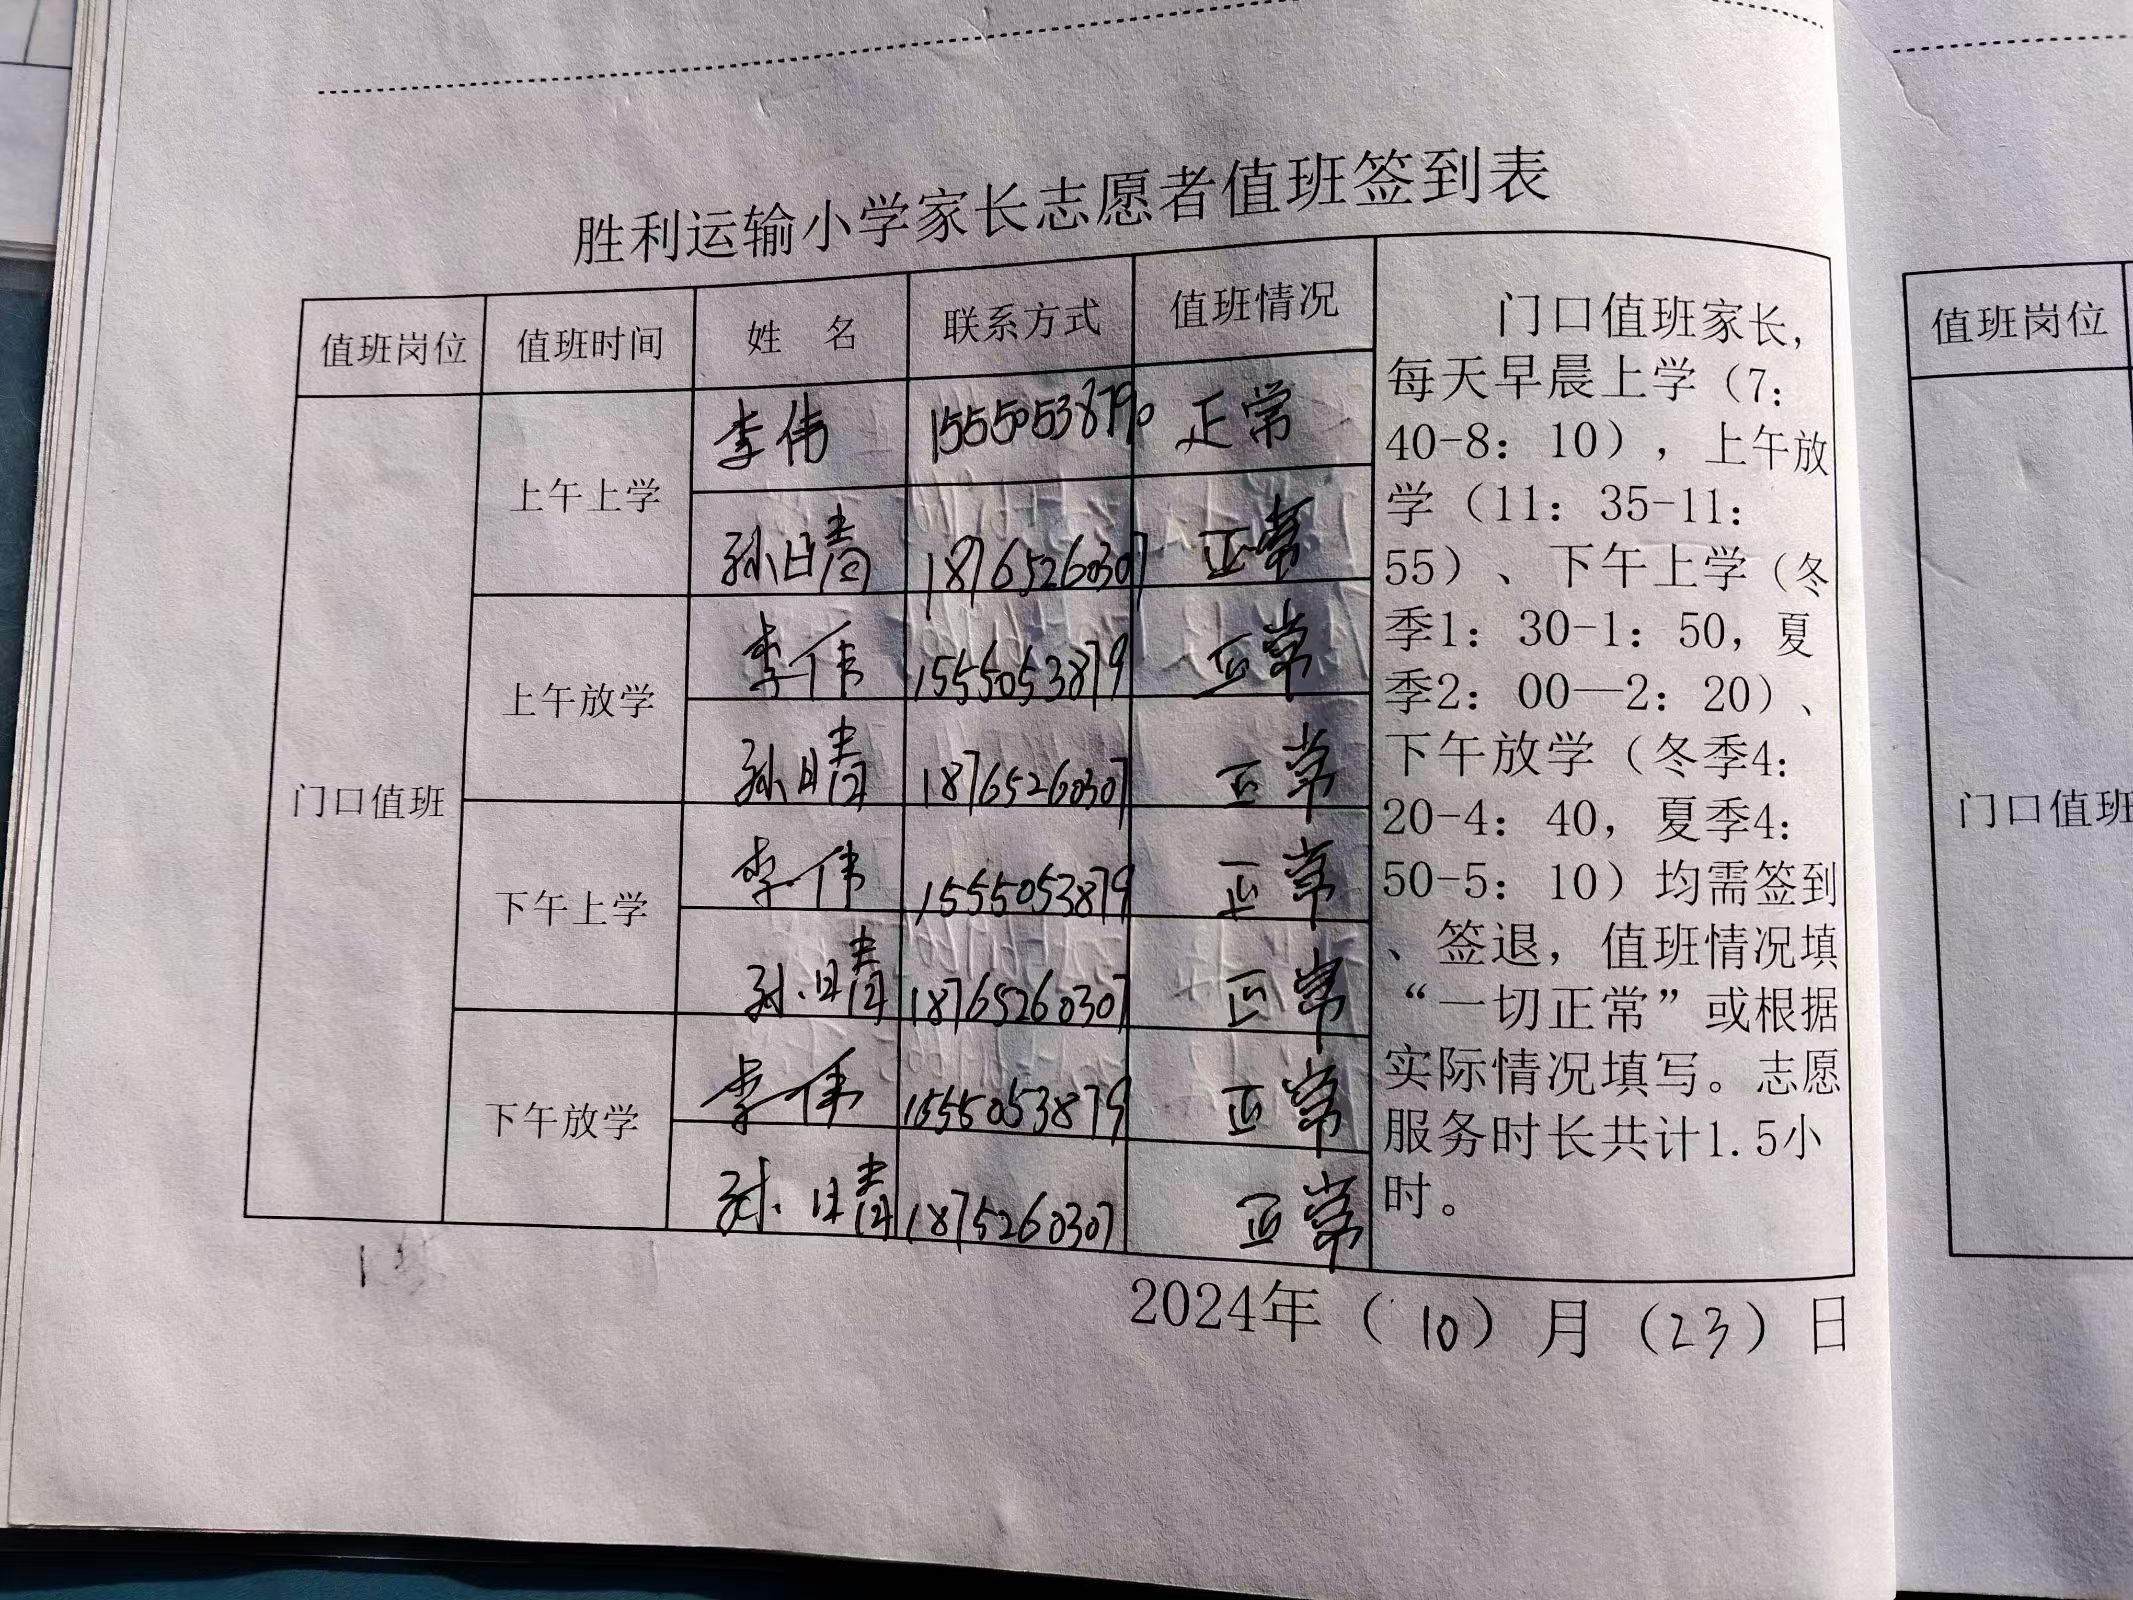 胜利运输小学家长志愿者值班签到表
值班岗位 值班时间 姓 名 联系方式 值班情况
门口值班
上午上学
李伟 15550538790 正常
孙晴 18765260307 正常
上午放学
李伟 1555053879 正常
孙晴 18765260307 正常
下午上学
李伟 1555053879 正常
孙晴 18765260307 正常
下午放学
李伟 1555053879 正常
孙晴 1875260307 正常
门口值班家长,
每天早晨上学（7:
40-8: 10），上午放
学（11: 35-11:
55）、下午上学（冬
季1: 30-1: 50, 夏
季2: 00—2: 20）、
下午放学（冬季4:
20-4: 40, 夏季4:
50-5: 10）均需签到
、签退, 值班情况填
“一切正常”或根据
实际情况填写。志愿
服务时长共计1.5小
时。
2024年（10）月（23）日
值班岗位
门口值班